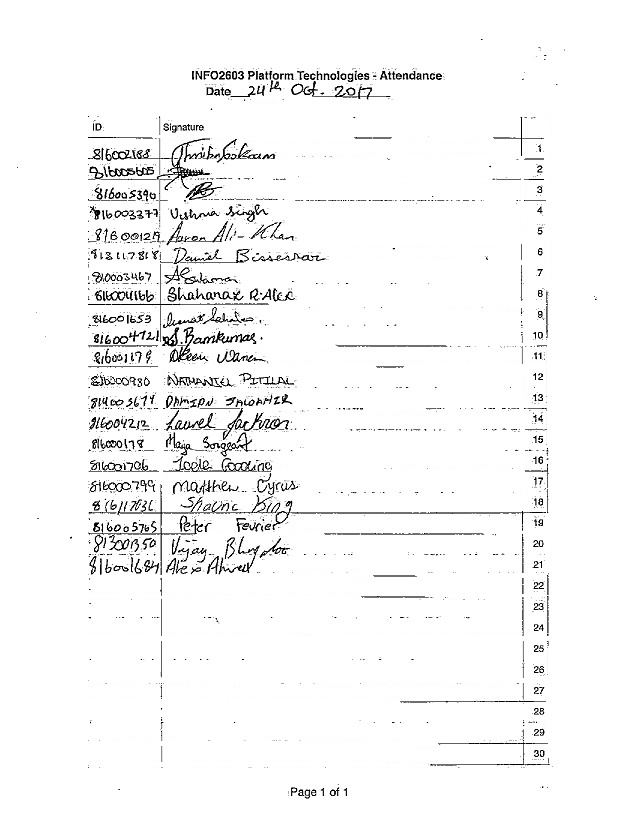 INFO2603 Platform Technologies - Attendance
Date 24th Oct. 2017
ID Signature
816002188 1
816005605 2
816005390 3
816003377 Vishna Singh 4
Aaron Ali-Khan 5
813117818 Daniel Bissessar 6
810003467 7
816004166 Shahanaz R-Alex 8
816001653 9
816004721 S. Ramkumar. 10
816001179 11
816000980 NATHANIEL PITILAL 12
814003674 DAMIAN JALOAHIR 13
816004212 Laurel Jackson 14
816000178 Maya Sorgeant 15
816001706 Joele Gooding 16
816000799 Matthew Cyrus 17
Shaunc King 18
816005765 Peter Fevrier 19
Vijay 20
816001684 Alexa Ahmed 21
22
23
24
25
26
27
28
29
30
Page 1 of 1